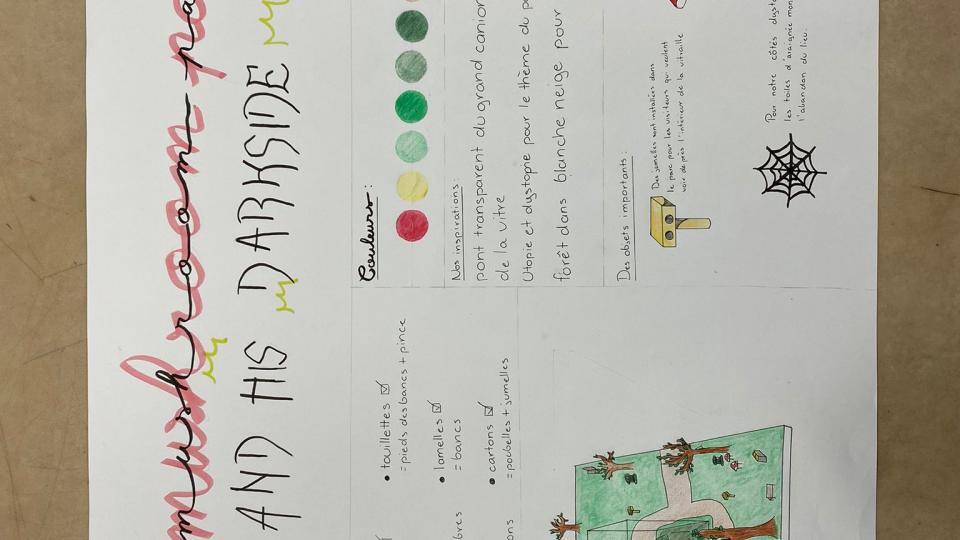 mushroom pa
AND HIS DARKSIDE
• touillettes ☑
= pieds des bancs + pince
• lamelles ☑
= bancs
• cartons ☑
= poubelles + jumelles
bres
ons
Couleurs :
Nos inspirations :
pont transparent du grand canion
de la vitre
Utopie et dystopie pour le thème du p
forêt dans blanche neige pour
Des objets importants :
Des jumelles sont installées dans
le parc pour les visiteurs qui veulent
voir de près l'intérieur de la vitraille
Pour notre côtés dysto
les toiles d'araignée mon
l'abandon du lieu.